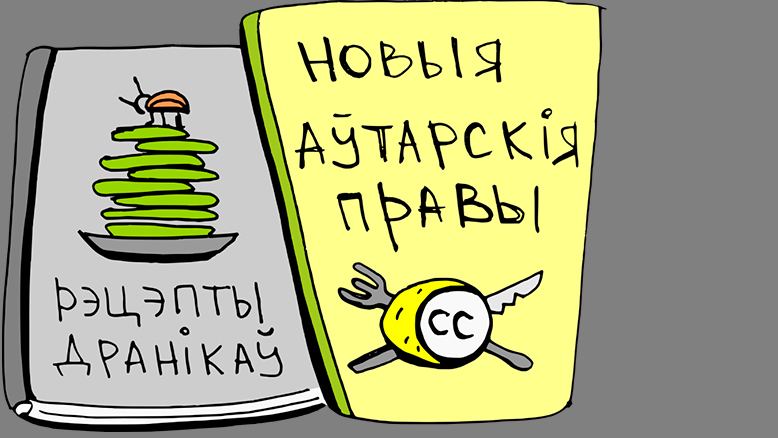 РЭЦЭПТЫ
ДРАНІКАЎ
НОВЫЯ
АЎТАРСКІЯ
ПРАВЫ
CC